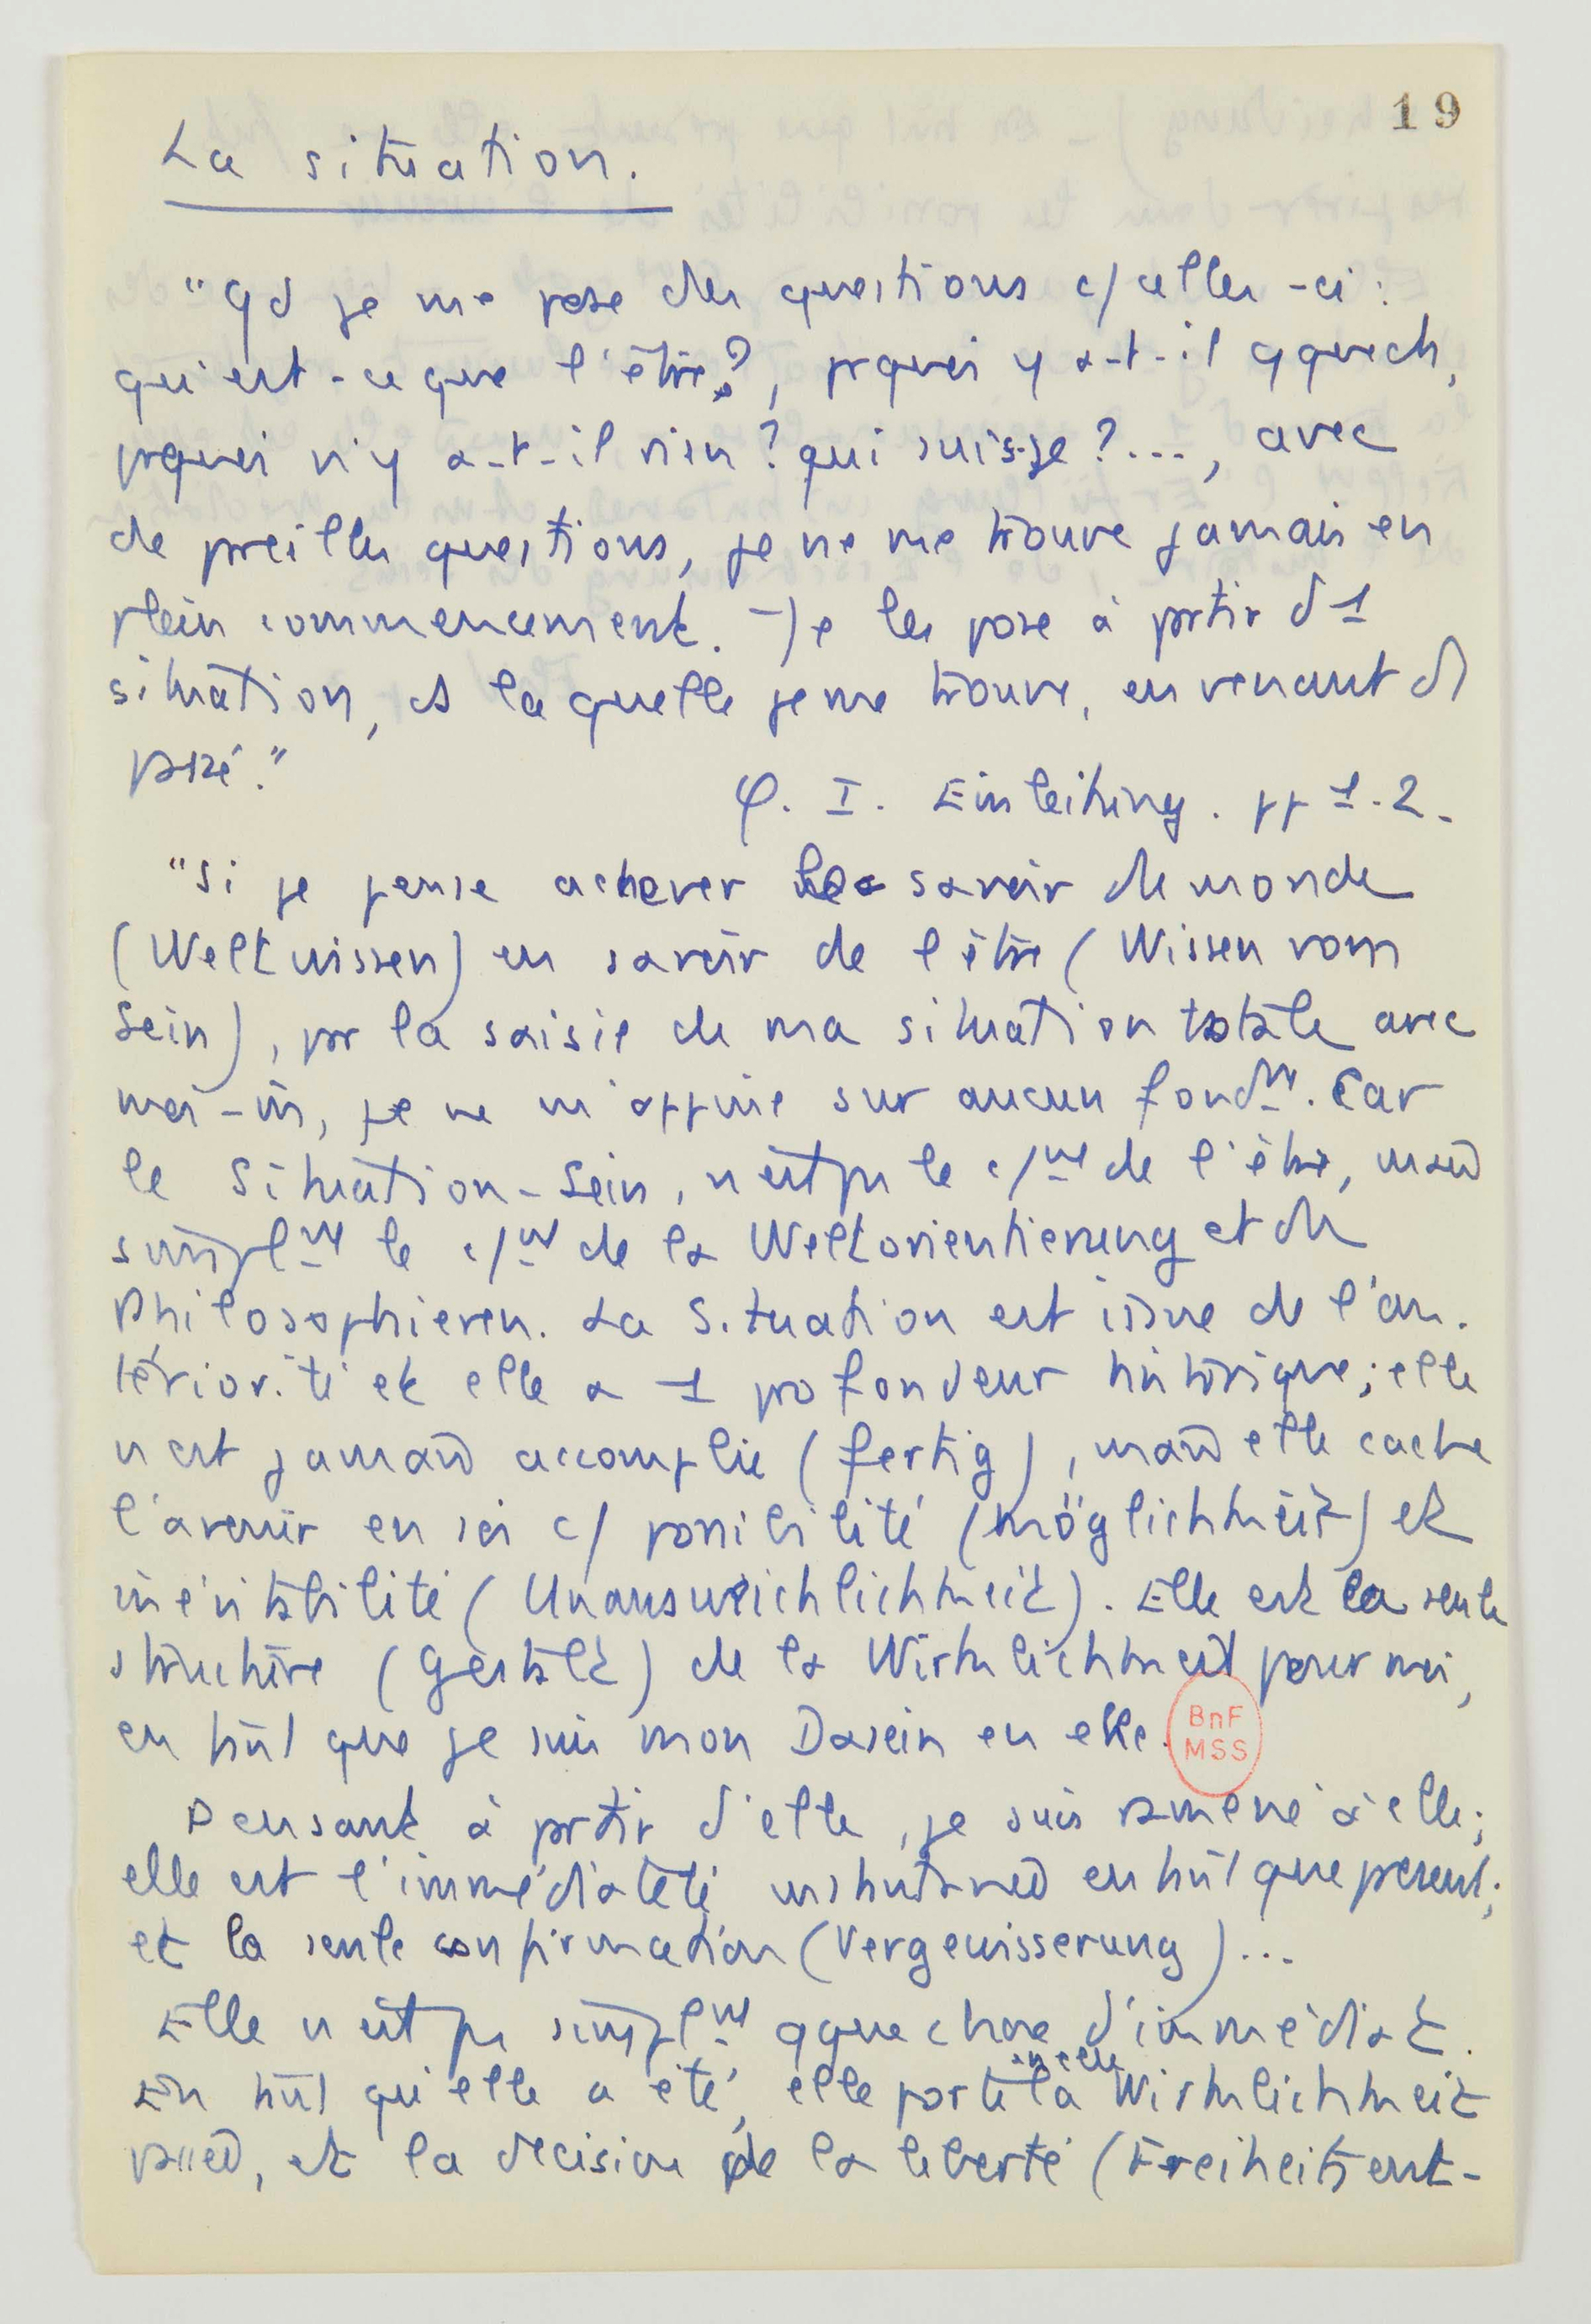 19
La situation.
"Qd je me pose des questions c/ celles-ci :
qu'est-ce que l'être?, pquoi y a-t-il qquech,
pquoi n'y a-t-il rien? qui suis-je?..., avec
de preilles questions, je ne me trouve jamais en
plein commencement. Je les pose à prtir d 1
situation, ds laquelle je me trouve, en venant d
passé."
φ. I. Einleitung. pp 1-2.
"Si je pense achever le savoir du monde
(Weltwissen) en savoir de l'être (Wissen vom
Sein), pr la saisie de ma situation totale avec
moi-m, je ne m'appuie sur aucun fondmt. Car
le Situation-Sein, n'est ps le c/mt de l'être, mais
simplmt le c/mt de la Weltorientierung et du
Philosophieren. La Situation est issue de l'an-
tériorité et elle a 1 profondeur historique; elle
n'est jamais accomplie (fertig), mais elle cache
l'avenir en soi c/ possibilité (Möglichkeit) et
inévitabilité (Unausweichlichkeit). Elle est la seule
structure (Gestalt) de la Wirklichkeit pour moi,
en tant que je suis mon Dasein en elle.
BnF
MSS
Pensant à prtir d'elle, je suis ramené à elle;
elle est l'immédiateté en tant que présent;
et la seule confirmation (Vergewisserung)...
Elle n'est ps simplmt qquechose d'immédiat.
En tant qu'elle a été, elle porte en elle la Wirklichkeit
passée, et la décision de la liberté (Freiheitsent-